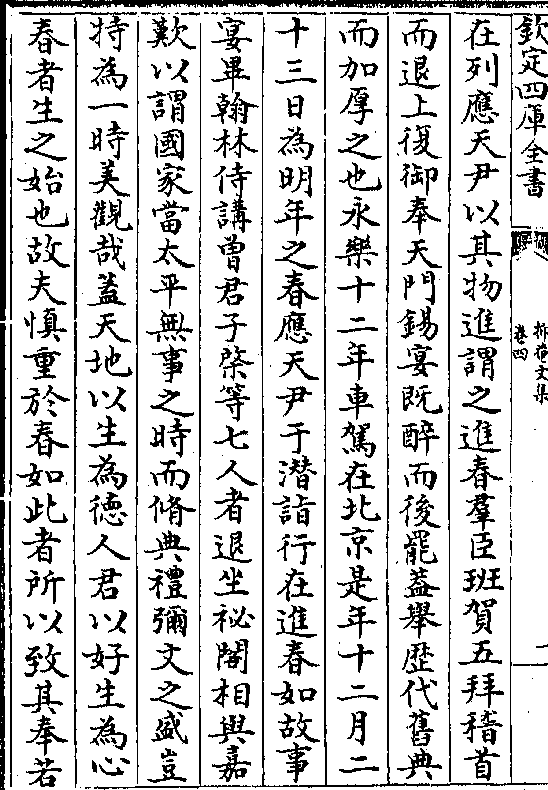 欽定四庫全書
抑菴文集
卷四
二
在列應天尹以其物進謂之進春羣臣班賀五拜稽首
而退上復御奉天門錫宴既醉而後罷蓋舉歴代舊典
而加厚之也永樂十二年車駕在北京是年十二月二
十三日為明年之春應天尹于潛詣行在進春如故事
宴畢翰林侍講曽君子棨等七人者退坐祕閣相與嘉
歎以謂國家當太平無事之時而脩典禮彌文之盛豈
特為一時美觀哉蓋天地以生為徳人君以好生為心
春者生之始也故夫慎重於春如此者所以致其奉若